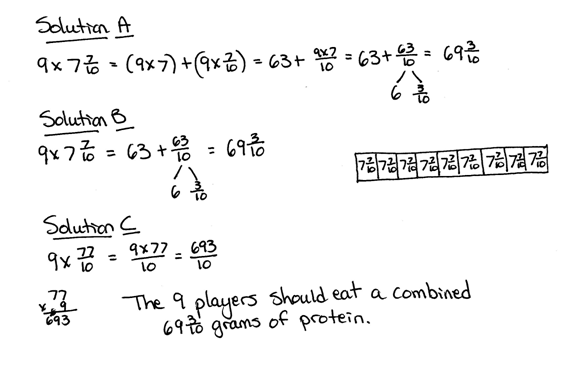 Solution A
9 x 7 7/10 = (9x7) + (9x 7/10) = 63 + 9x7/10 = 63 + 63/10 = 69 3/10
6 3/10
Solution B
9 x 7 7/10 = 63 + 63/10 = 69 3/10
6 3/10
7 7/10 7 7/10 7 7/10 7 7/10 7 7/10 7 7/10 7 7/10 7 7/10 7 7/10
Solution C
9 x 77/10 = 9x77/10 = 693/10
77
x 6 9
693
The 9 players should eat a combined
69 3/10 grams of protein.